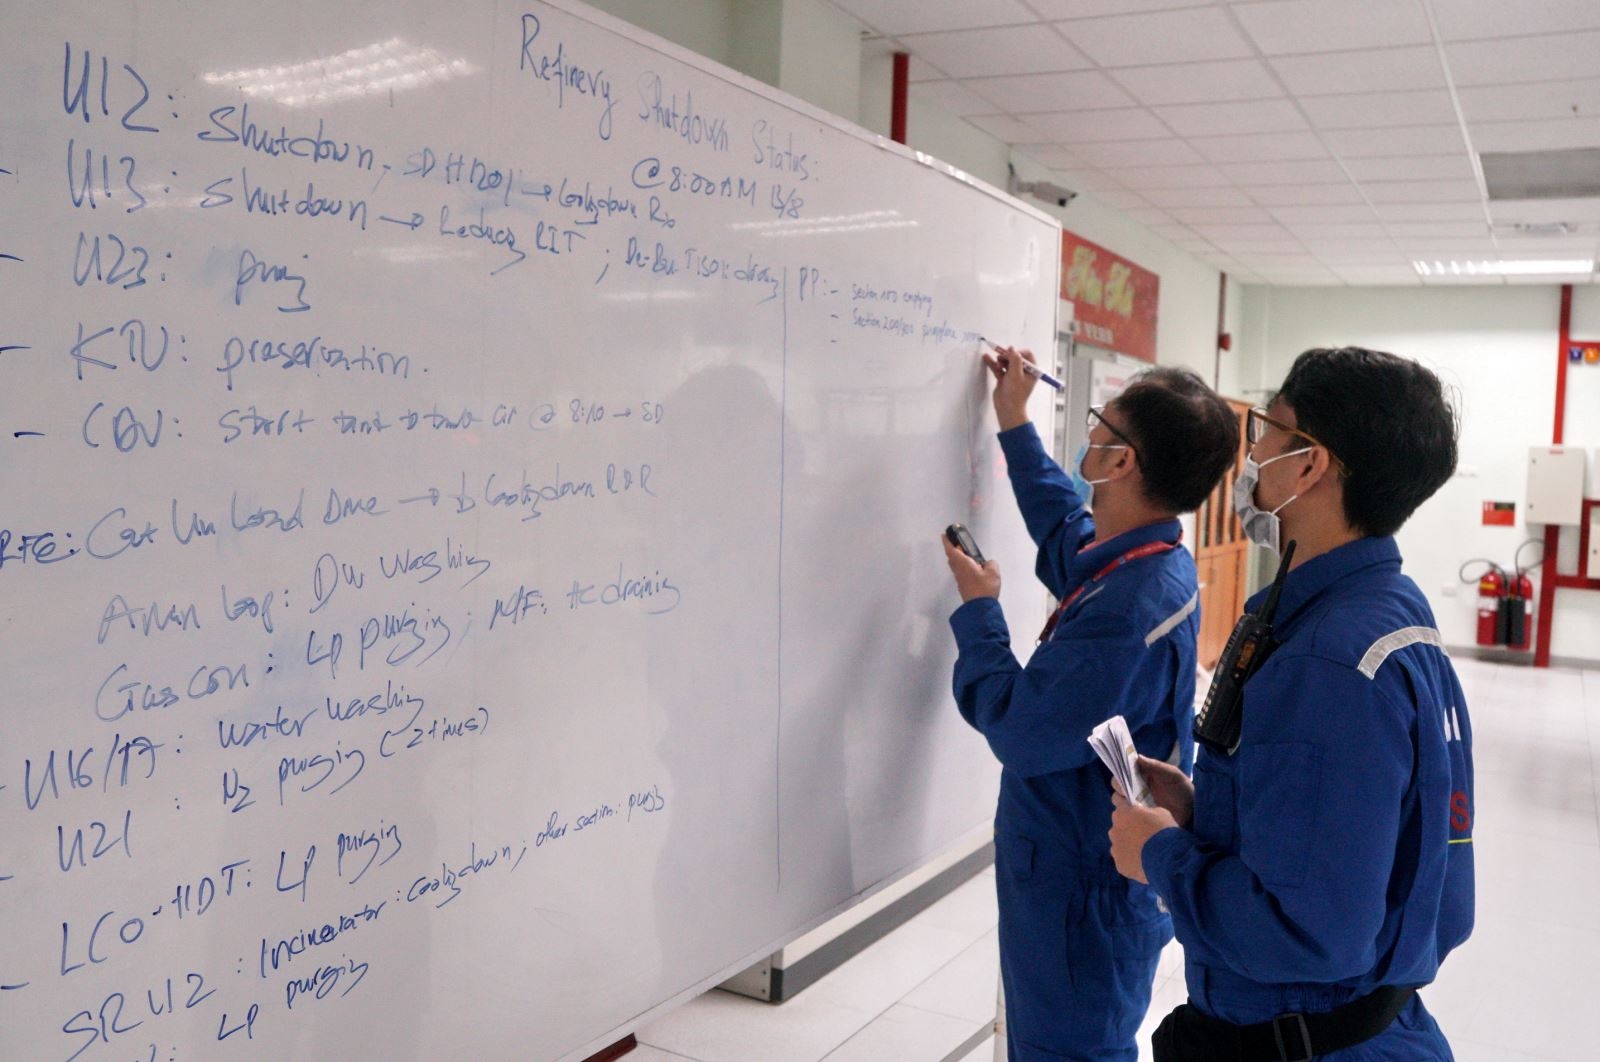 Refinery Shutdown Status:
@ 8:00AM 13/8
U12: Shutdown, SD H1201 → Coolingdown Rx
U13: Shutdown → Reducing RIT; De-Bu T1501: draining
U23: purging
KTU: preservation.
- CDU: Start tank to tank cir @ 8:10 → SD
Cat Unload Done → Coolingdown R&R
Amin loop: DW Washing
Gas Con: LP purging; M/F: HC draining
- U16/17: Water washing
U21: N2 purging (2 times)
LCO-HDT: LP purging
SRU2: Incinerator: Coolingdown; other section: purging
LP purging
PP: - Section 100 emptying
- Section 200/300 propylene
-